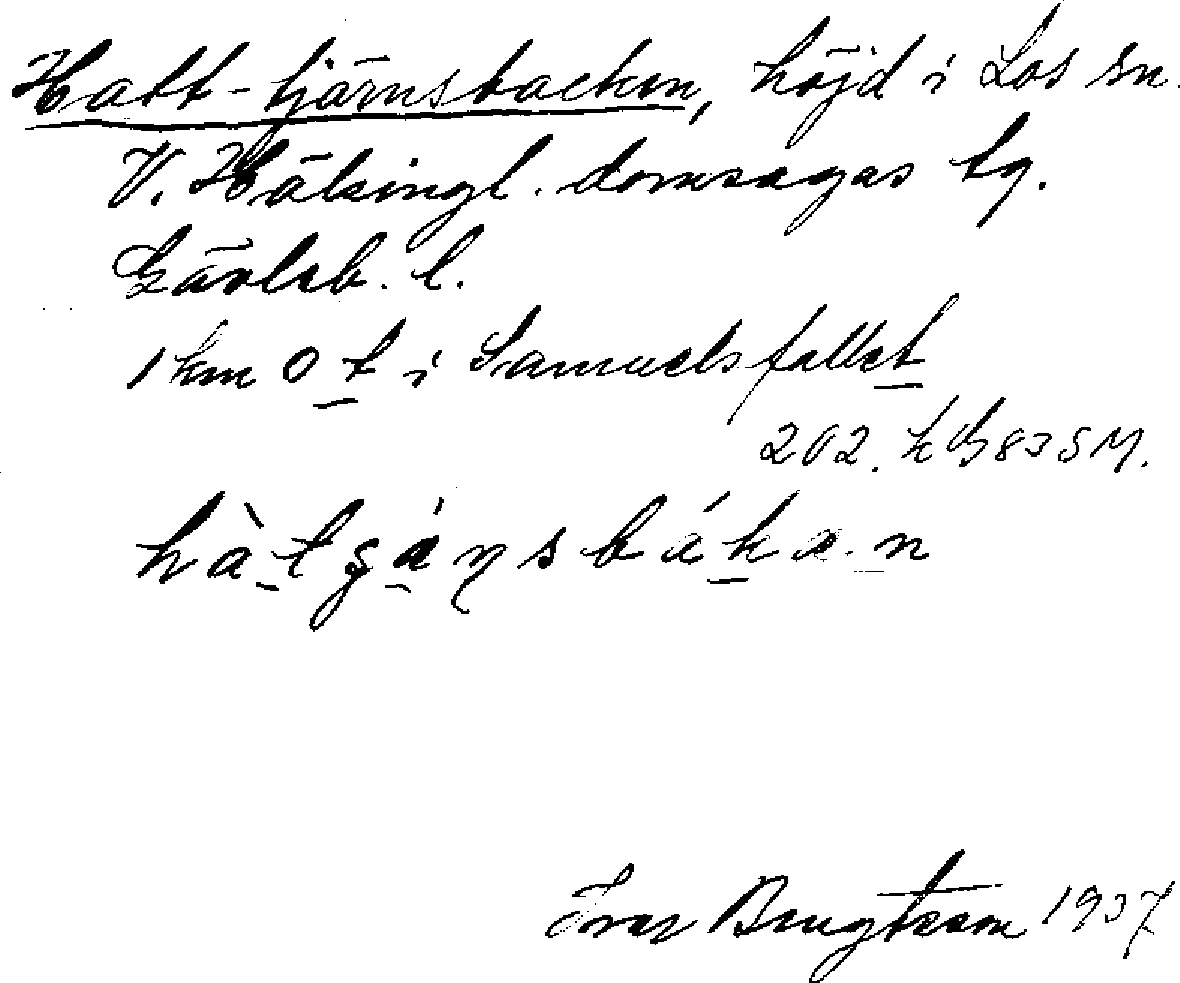 Hatt-tjärnsbacken, höjd i Los sn.
V. Hälsingl. domsagas tg.
Gävleb. l.
1 km O t i Samuelsfallet
202. h B 83 S M.
Ivar Bengtsson 1937